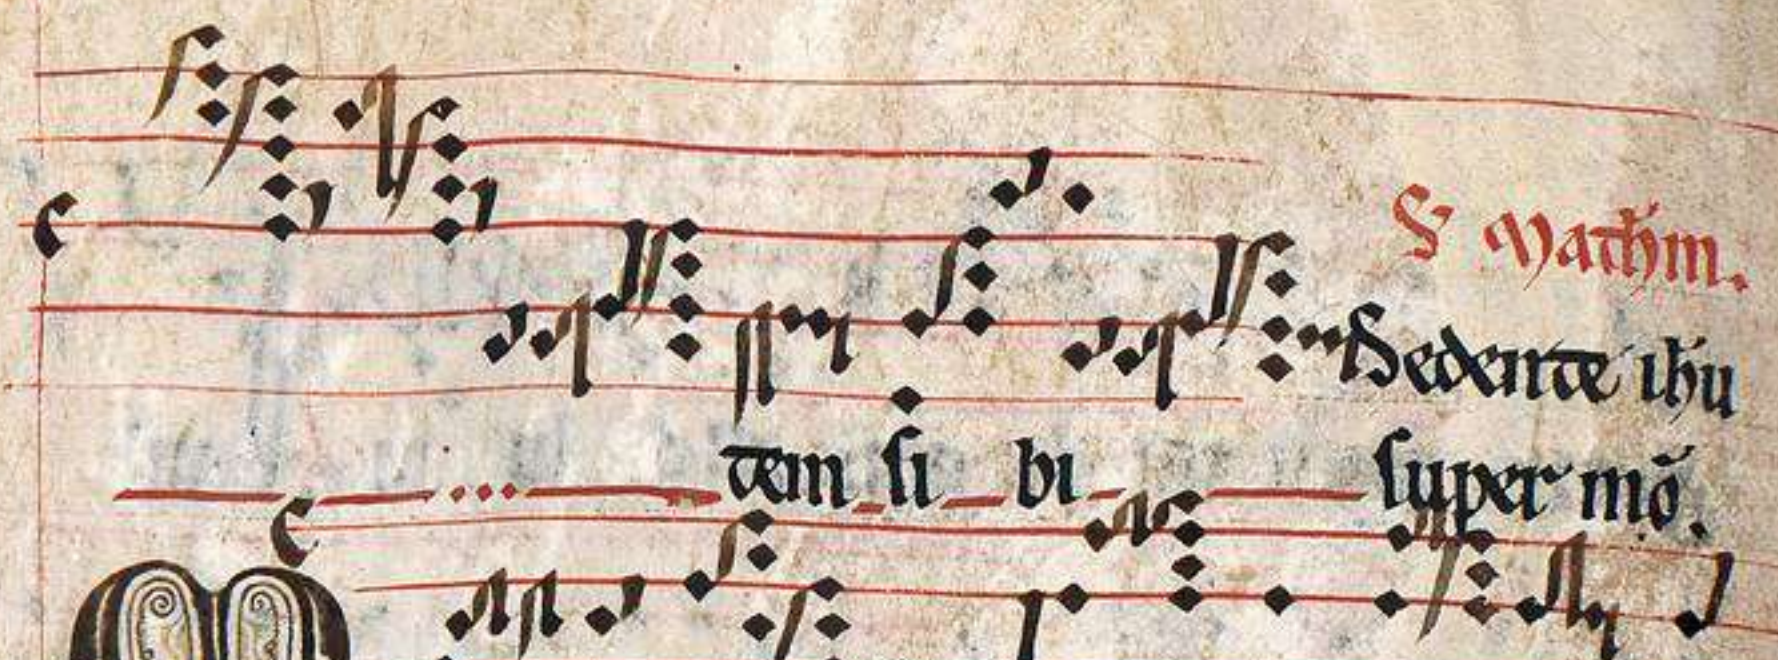 S Mathm.
Sedente ihu
tem si bi super mō.